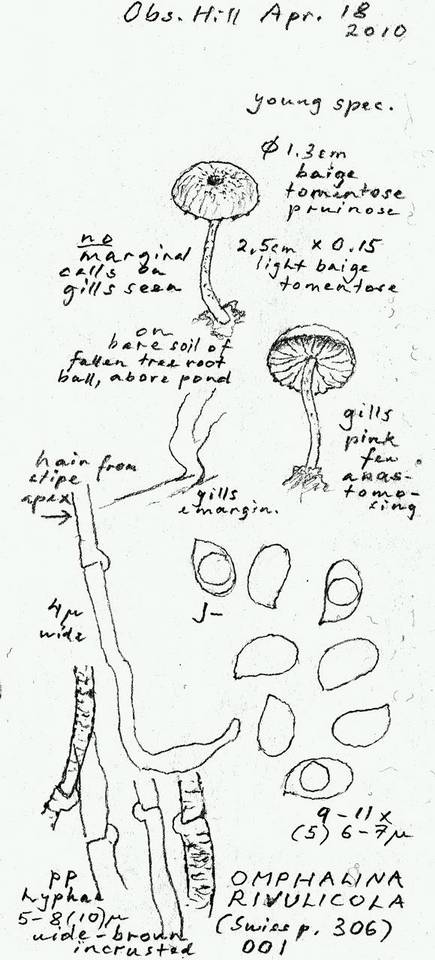 Obs. Hill Apr. 18
2010
young spec.
ϕ 1.3cm
baige
tomentose
pruinose
no
marginal
cells on
gills seen
2.5cm x 0.15
light baige
tomentose
on
bare soil of
fallen tree root
ball, above pond
gills
pink
few
anas-
tomo-
sing
hair from
stipe
apex
→
gills
emargin.
J-
4μ
wide
9-11 x
(5) 6-7μ
pp
hyphae
5-8(10)μ
wide-brown
incrusted
OMPHALINA
RIVULICOLA
(Swiss p. 306)
001